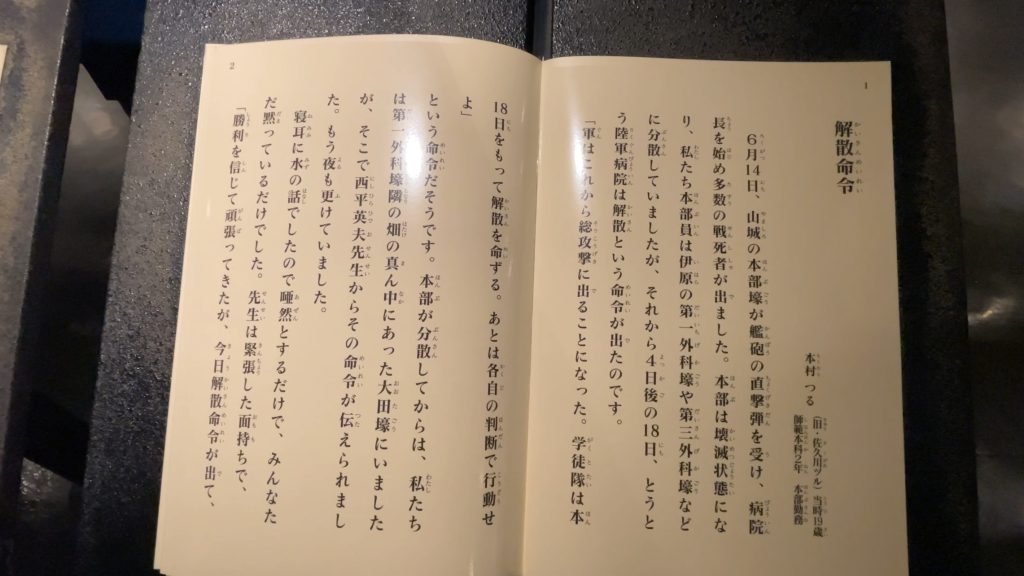 1
解散命令
本村 つる
(旧・佐久川ツル) 当時19歳
師範本科2年 本部勤務
6月14日、山城の本部壕が艦砲の直撃弾を受け、病院
長を始め多数の戦死者が出ました。本部は壊滅状態にな
り、私たち本部員は伊原の第一外科壕や第三外科壕など
に分散していましたが、それから4日後の18日、とうと
う陸軍病院は解散という命令が出たのです。
「軍はこれから総攻撃に出ることになった。学徒隊は本
2
18日をもって解散を命ずる。あとは各自の判断で行動せ
よ」
という命令だそうです。本部が分散してからは、私たち
は第一外科壕隣の畑の真ん中にあった大田壕にいました
が、そこで西平英夫先生からその命令が伝えられまし
た。もう夜も更けていました。
寝耳に水の話でしたので唖然とするだけで、みんなた
だ黙っているだけでした。先生は緊張した面持ちで、
「勝利を信じて頑張ってきたが、今日解散命令が出て、